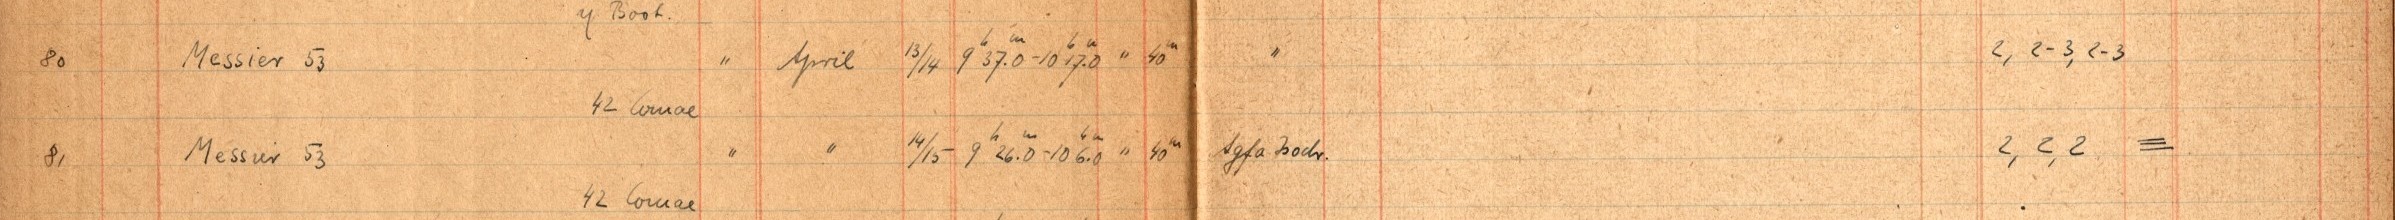 η Boot.
80 Messier 53 " April 13/14 9h 37m.0 - 10h 17m.0 " 40m " 2, 2-3, 2-3
42 Comae
81 Messier 53 " " 14/15 9h 26m.0 - 10h 6m.0 " 40m Agfa Isochr. 2, 2, 2 ≡
42 Comae